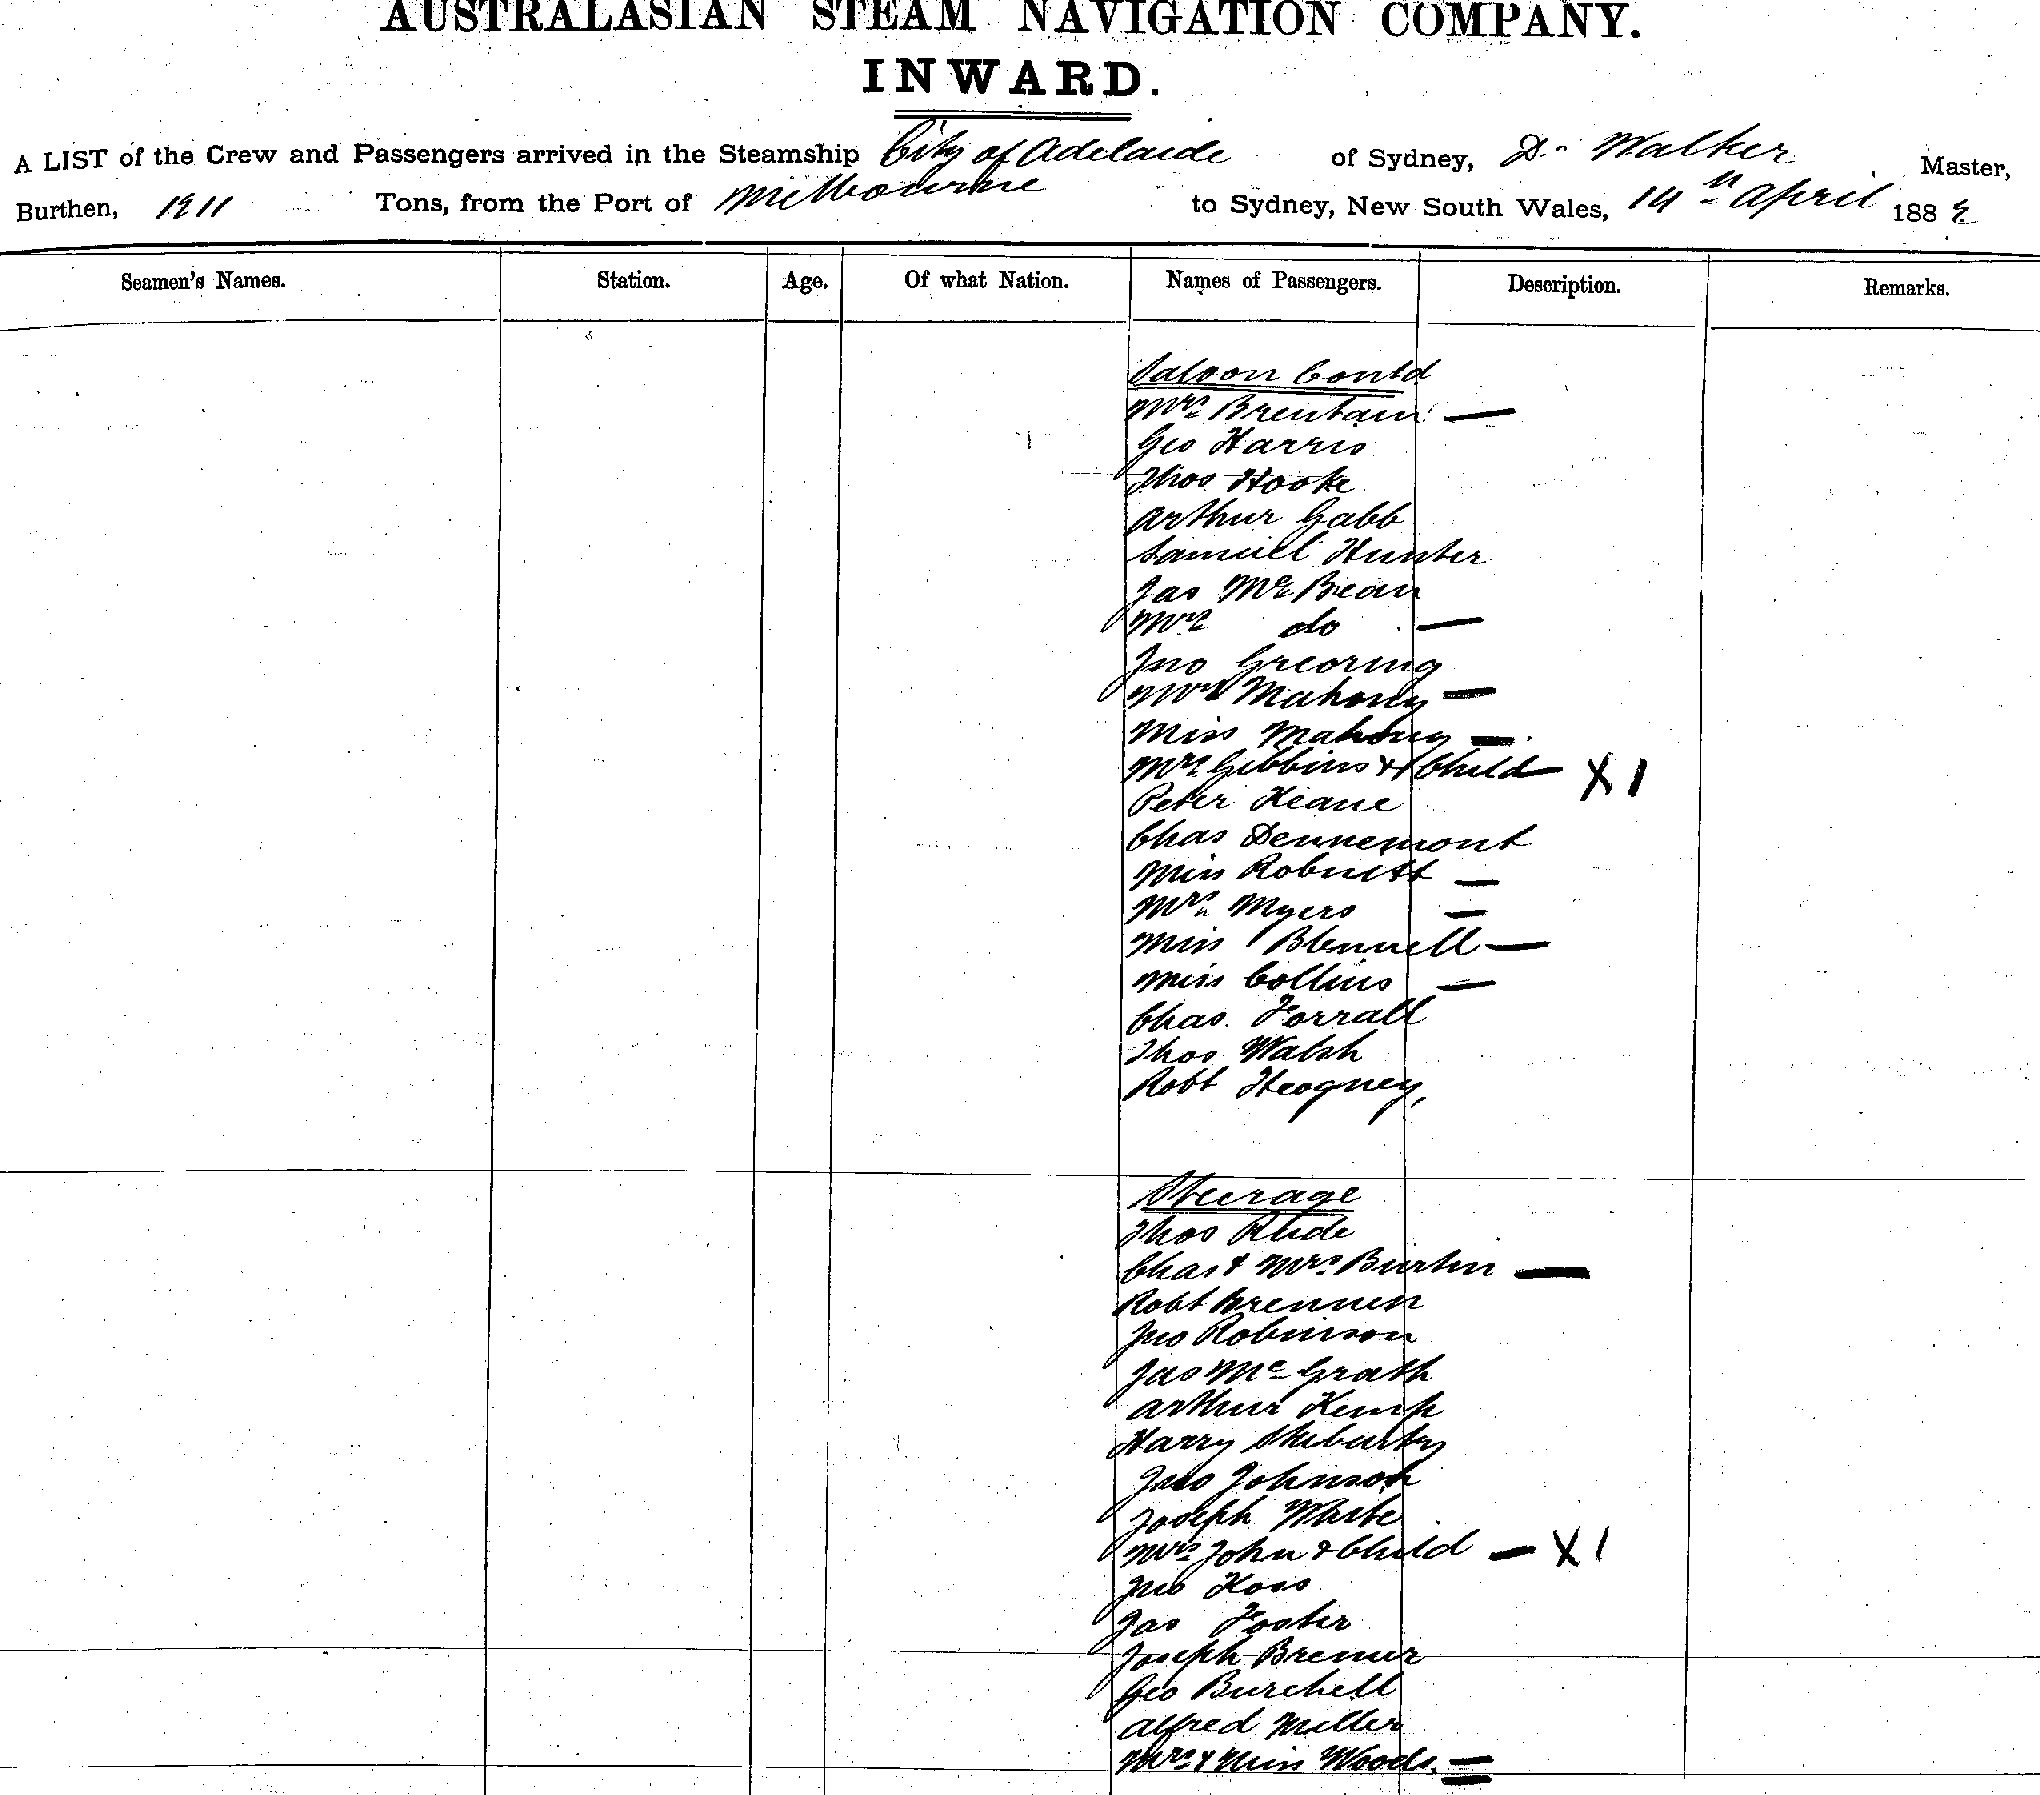 AUSTRALASIAN STEAM NAVIGATION COMPANY.
INWARD.
A LIST of the Crew and Passengers arrived in the Steamship City of Adelaide of Sydney, D. Walker Master,
Burthen, 1211 Tons, from the Port of Melbourne to Sydney, New South Wales, 14th April 188
Seamen's Names. Station. Age. Of what Nation. Names of Passengers. Description. Remarks.
Saloon Contd
Mrs Brentani —
Geo Harris
Thos Hooke
Arthur Gabb
Samuel Hunter
Jas McBean
Mrs do —
Jno Greoring
Mrs Mahony —
Miss Mahony —
Mrs Gibbins & Child — X 1
Peter Keane
Chas Dennemont
Miss Robnett —
Mrs Myers —
Miss Blennell —
Miss Collins —
Chas. Forrall
Thos Walsh
Robt Heogney,
Steerage
Thos
Chas & Mrs Burtin —
Robt Brennen
Jno Robinson
Jas McGrath
Arthur Kemp
Harry
Jno Johnson
Joseph White
Mrs John & Child — X 1
Jno Koss
Jas Foster
Joseph Bremer
Geo Burchell
Alfred Miller
Mrs & Miss Woods. =